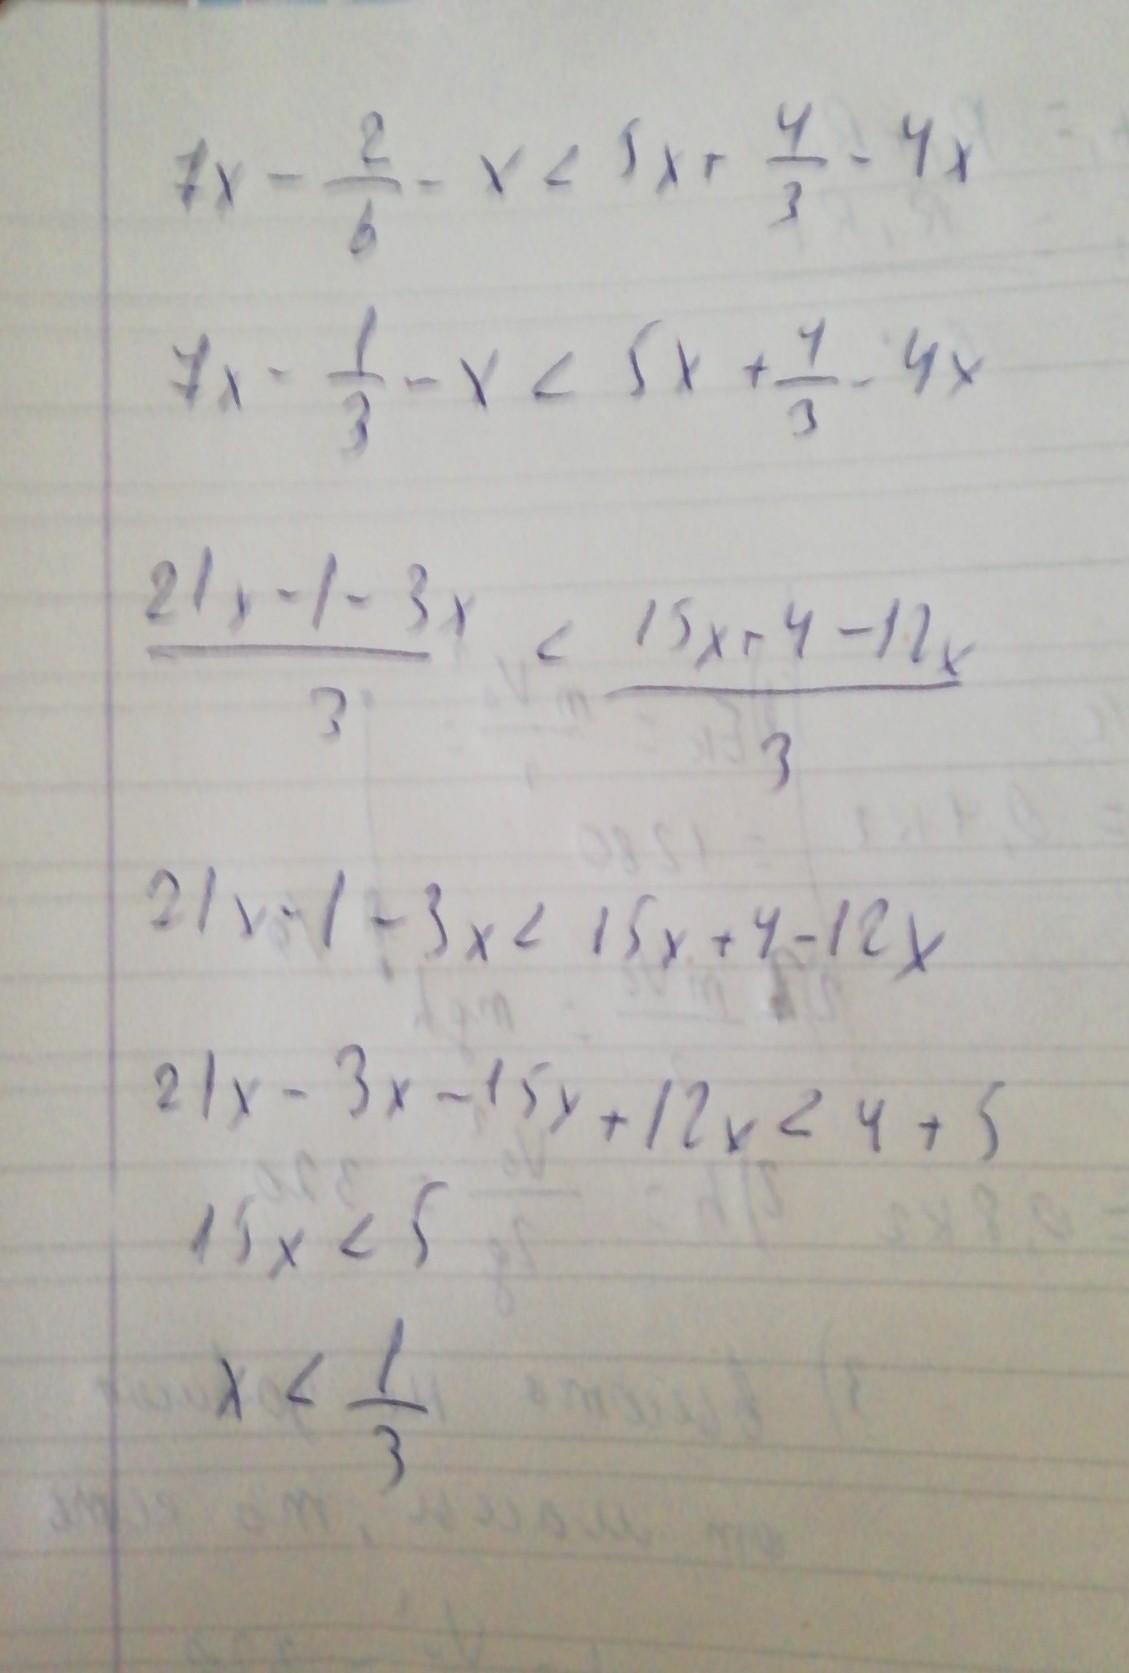 7x - 2/6 - x < 5x + 4/3 - 4x
7x - 1/3 - x < 5x + 4/3 - 4x
(21x - 1 - 3x)/3 < (15x + 4 - 12x)/3
21x - 1 - 3x < 15x + 4 - 12x
21x - 3x - 15x + 12x < 4 + 5
15x < 5
x < 1/3